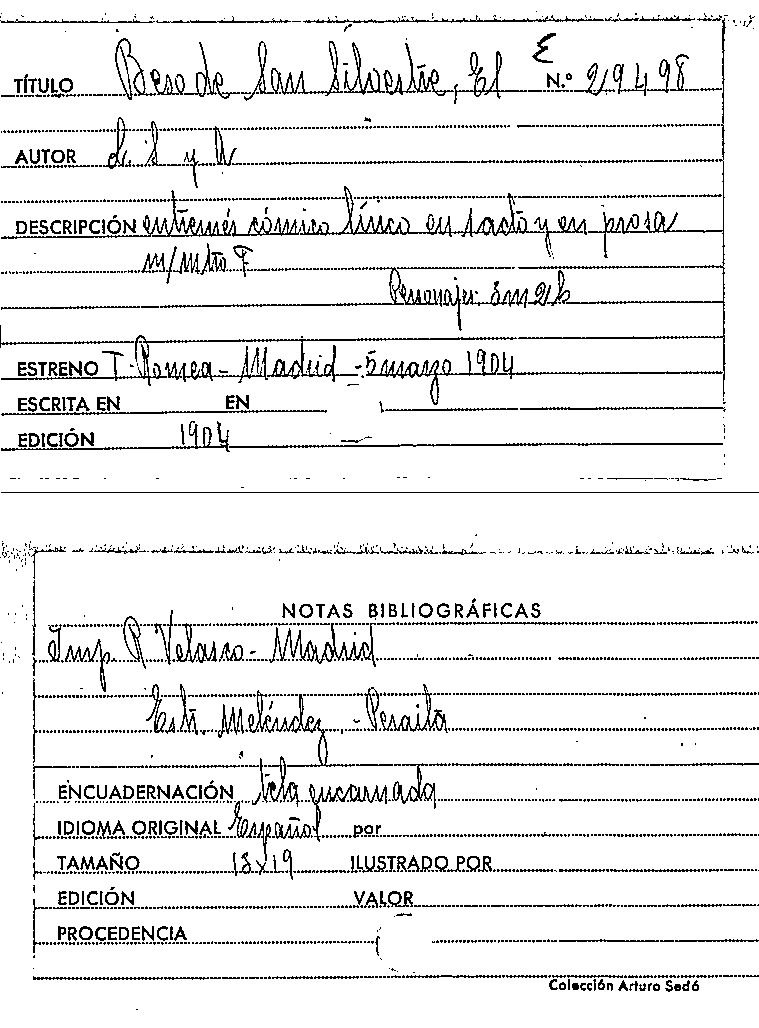 E
TÍTULO Beso de San Silvestre, El N.º 29498
AUTOR L. S y A
DESCRIPCIÓN entremés cómico lírico en 1 acto y en prosa
m/ mtro F
Personajes 3m 2h
ESTRENO T. Romea - Madrid - 5 marzo 1904
ESCRITA EN EN
EDICIÓN 1904
NOTAS BIBLIOGRÁFICAS
Imp. R Velasco - Madrid
Estr. Meléndez - Peraita
ENCUADERNACIÓN tela encarnada
IDIOMA ORIGINAL Español por
TAMAÑO 13x19 ILUSTRADO POR
EDICIÓN VALOR
PROCEDENCIA
Colección Arturo Sedó